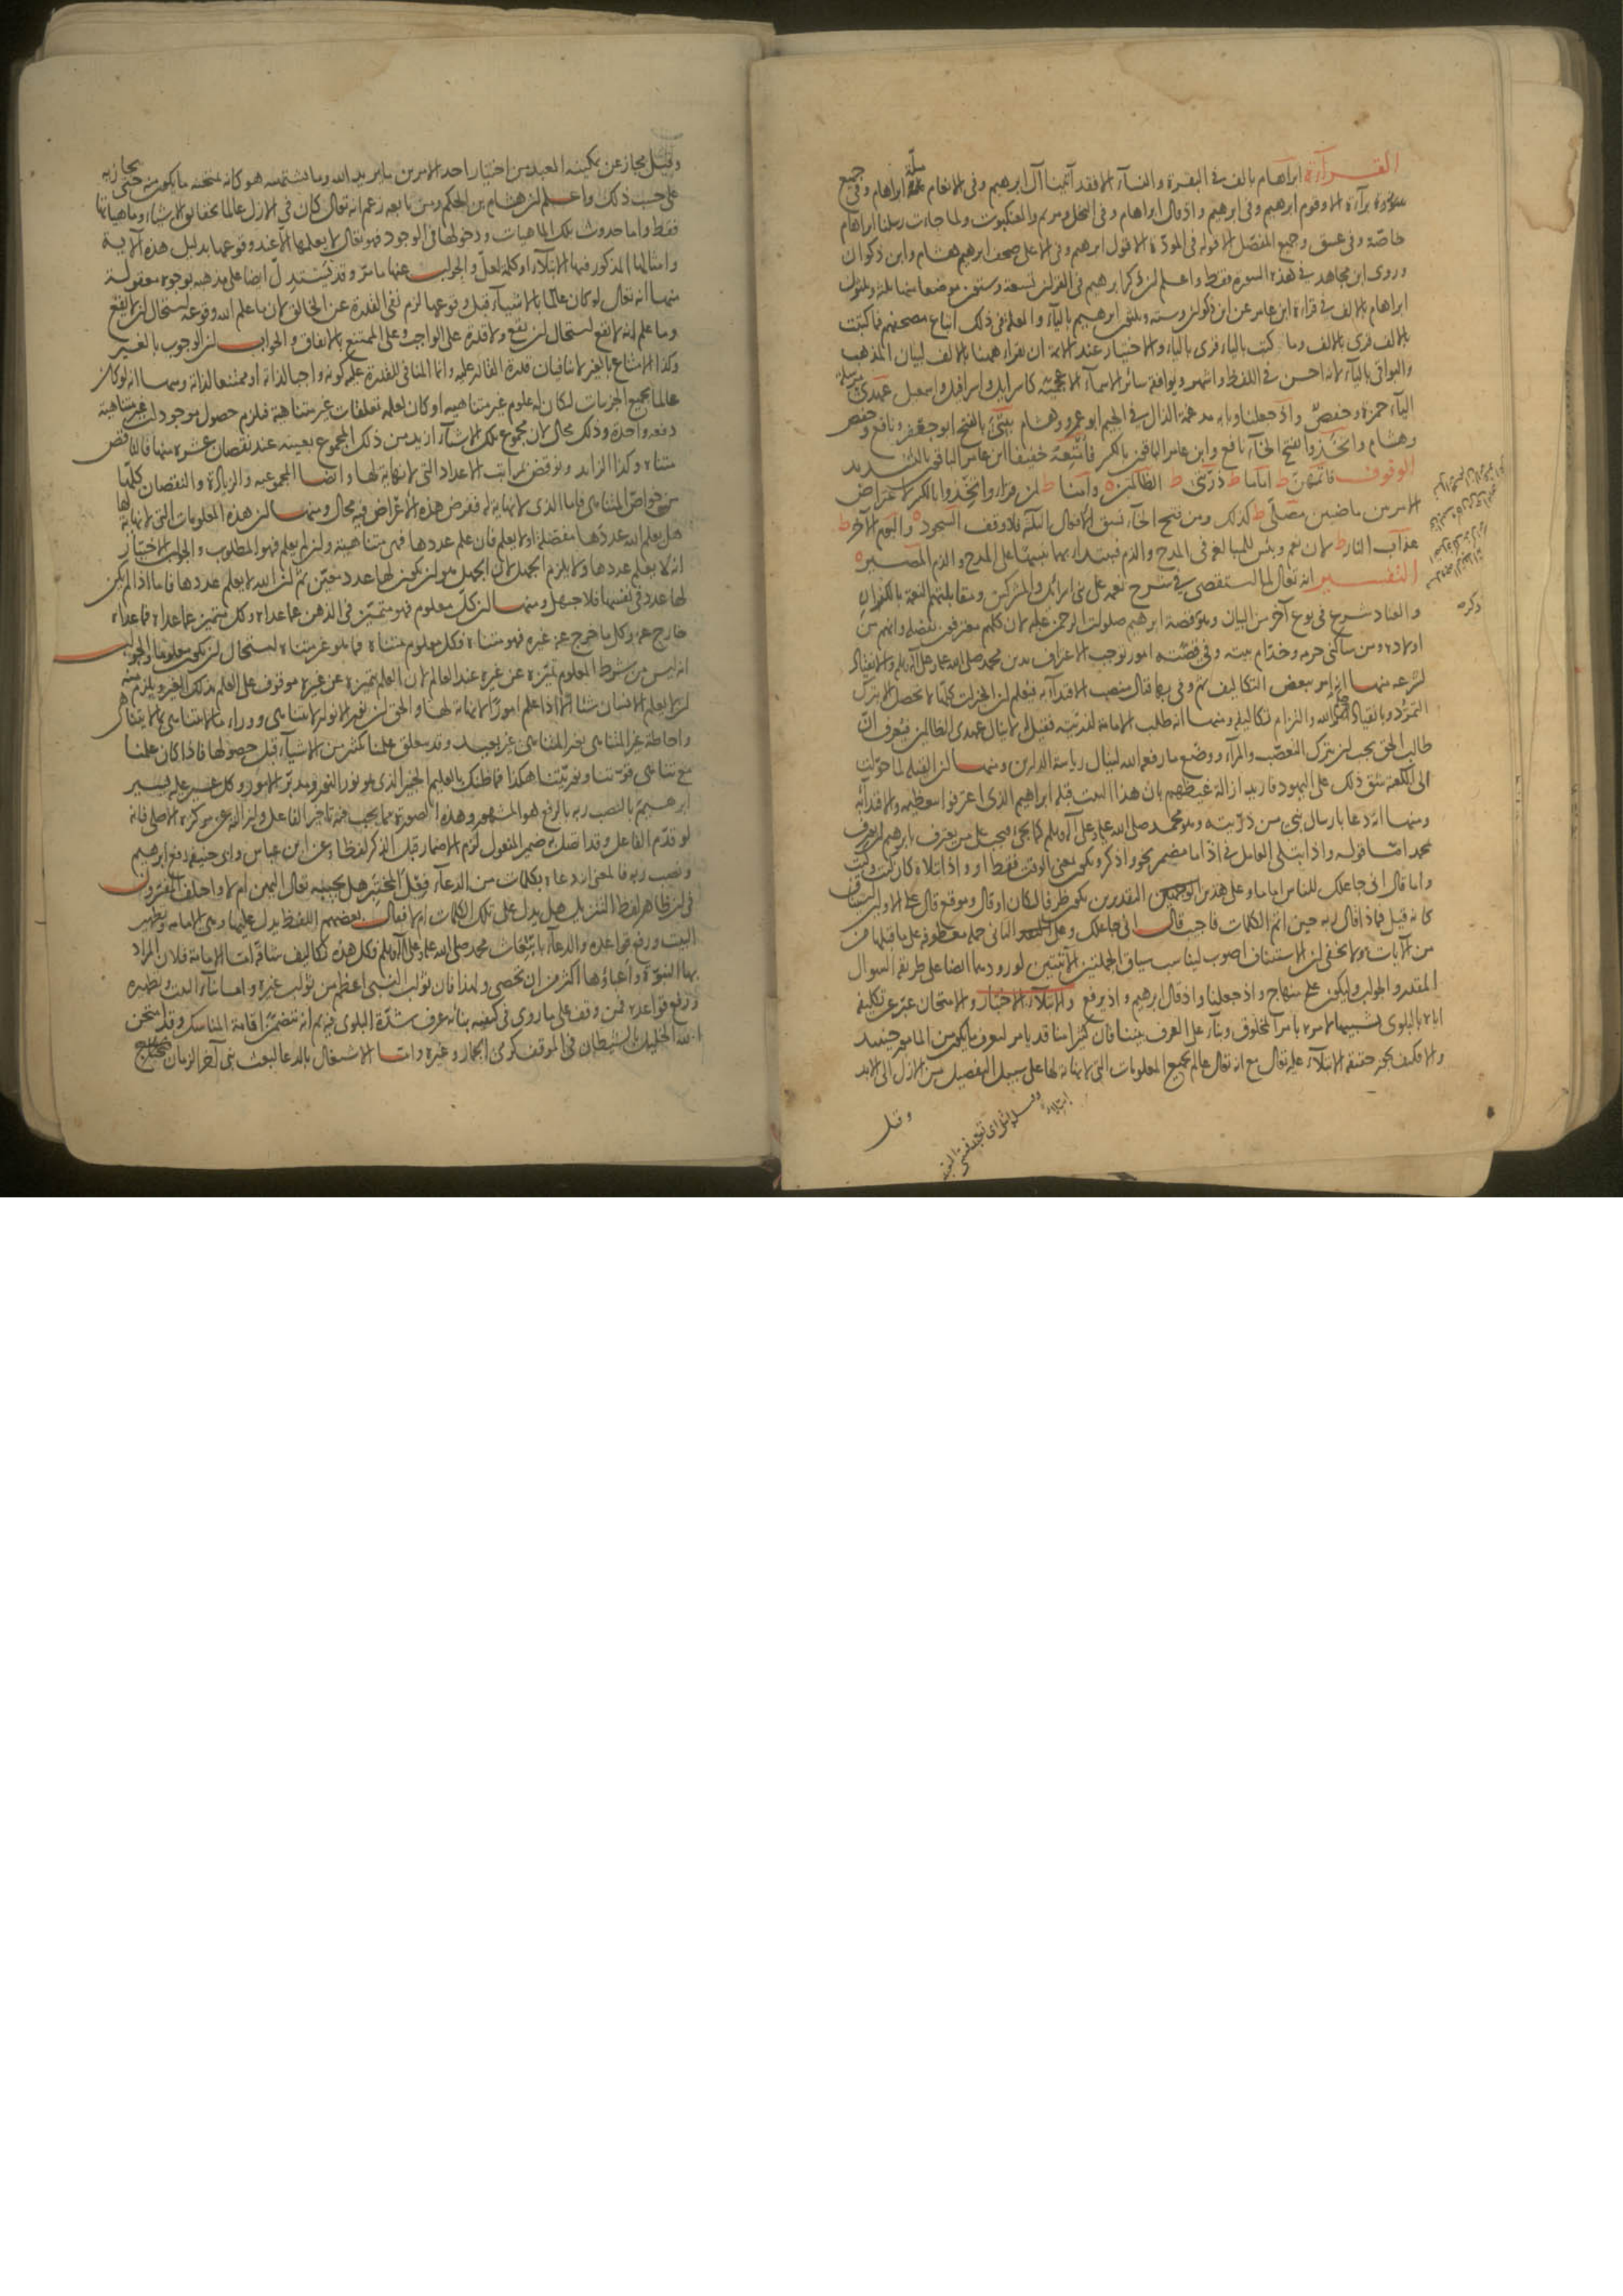 القرآءة ابراهام بالف في البقرة والنسآء الا فقد آتينا آل ابرهيم وفي الانعام ملّة ابراهام وفي جميع
سورة برآءة الا وقوم ابرهيم وفي ابرهيم واذ قال ابراهام وفي النحل ومريم والعنكبوت ولما جاءت رسلنا ابراهام
خاصّة وفي عسق وجميع المفصّل الا قوله في المودّة الا قول ابرهيم وفي الاعلى صحف ابرهيم هشام وابن ذكوان
وروى ابن مجاهد في هذه السورة فقط واعلم ان ذكر ابرهيم في القرآن تسعة وستون موضعا منها ثلثة وثلثون
ابراهام بالالف في قرآءة ابن عامر عن ابن ذكوان وستة وثلثون ابرهيم باليآء والعلة في ذلك اتباع مصحفهم فما كتبت
بالالف قرئ بالالف وما كتب باليآء قرئ باليآء والاختيار عند الائمة ان نقرأ ههنا بالالف لبيان المذهب
والبواقي باليآء لانه احسن في اللفظ واشهر ويوافقه سائر الاسمآء الاعجمية كاسرائيل واسرافيل واسمعيل عهدي مرسلة
اليآء حمزة وحفصٌ واذ جعلنا وبابه مدغمة الذال في الجيم ابو عمرو وهشام بيتيَ بالفتح ابو جعفر ونافع وحفص
وهشام واتّخَذوا بفتح الخآء نافع وابن عامر الباقون بالكسر فأُمْتِعُهُ خفيفا ابن عامر الباقون بالتشديد
الوقوف فاتمّهنّ ط اماما ط ذرّيّتي ط الظالمين ه وأمنا ط لمن قرأ واتخِذوا بالكسر لاعتراض
الامر بين ماضيين مصلّى ط كذلك ومن فتح الخآء نسق الافعال الثلثة فلا وقف السجود ه واليوم الآخر ط
عذاب النار ط لان نعم وبئس للمبالغة في المدح والذم فيبتدا بهما تنبيها على المدح والذم المصير ه
التفسير انه تعالى لما استقصى في شرح نعمه على بني اسرائيل والمشركين ومقابلتهم النعمة بالكفران
والعناد شرع في نوع آخر من البيان وهو قصة ابرهيم صلوات الرحمن عليه لان كلهم معترفون بفضله وانهم من
اولاده ومن ساكني حرمه وخدّام بيته وفي قصّته امور توجب الاعتراف بدين محمد صلى الله عليه وعلى آله وسلم والانقياد
لشرعه منها انه امر ببعض التكاليف ثم وفى بها فنال منصب الاقتدآء به فيعلم ان الخيرات كلّها لا تحصل الا بترك
التمرّد والانقياد لحكم الله والتزام تكاليفه ومنها انه طلب الامامة لذريّته فقيل لا ينال عهدي الظالمين فيُعرف انّ
طالب الحق يجب ان يترك التعصّب والمرآء ووضع ما رفعه الله لينال رياسة الدارين ومنها ان القبلة لما حوّلت
الى الكعبة شق ذلك على اليهود فاريد ازالة غيظهم بان هذا البيت قبلة ابراهيم الذي اعترفوا بتعظيمه والاقتدآء به
ومنها انه دعا بارسال نبي من ذرّيّته وهو محمد صلى الله عليه وعلى آله وسلم كما يجئ فيجب على من يعترف بابرهيم ان يعرف
محمدا امّا قوله واذ ابتلى العامل في اذ اما مضمر نحو اذكر ويكون بمعنى الوقت فقط او واذ ابتلاه كان كيت وكيت
واما قال اني جاعلك للناس اماما وعلى هذين التقديرين يكون ظرفا لكان او قال وموقع قال على الاول استيناف
كانه قيل فماذا قال ربه حين اتم الكلمات فاجيب قال اني جاعلك وعلى الثاني جملة معطوفة على ما قبلها من
من الآيات ولا يخفى ان الاستيناف اصوب ليناسب سياق الجملتين الآتيتين لورودهما ايضا على طريقة السوال
المقدر والجواب وليكون على منهاج واذ جعلنا واذ قال ابرهيم واذ يرفع والابتلآء الاختبار والامتحان عبّر عن تكليفه
اياه بالبلوى تشبيها لامره بامر المخلوق وبنآء على العرف بيننا فان كثيرا منا قد يامر ليعرف ما يكون من المامور حينئذ
والا فكيف يجوز حقيقة الابتلآء عليه تعالى مع انه تعالى عالم بجميع المعلومات التي لا نهاية لها على سبيل التفصيل من الازل الى الابد
وقيل
وقيل مجاز عن تمكينه العبد من اختيار احد الامرين ما يريد الله وما يشتهيه هو كانه يمتحنه ما يكون منه حتى يجازيه
على حسب ذلك واعلم ان هشام بن الحكم ومن تابعه زعم انه تعالى كان في الازل عالما بحقائق الاشيآء وماهياتها
فقط واما حدوث تلك الماهيات ودخولها في الوجود فهو تعالى لا يعلمها الا عند وقوعها بدليل هذه الآية
وامثالها المذكور فيها الابتلآء او كلمة لعلّ والجواب عنها ما مرّ وقد يُستدلّ ايضا على مذهبه بوجوه معقولة
منها انه تعالى لو كان عالما بالاشيآء قبل وقوعها لزم نفي القدرة عن الخالق لان ما علم الله وقوعه استحال ان لا يقع
وما علم انه لا يقع استحال ان يقع ولا قدرة على الواجب وعلى الممتنع بالاتفاق والجواب ان الوجوب بالغير
وكذا الامتناع بالغير لا ينافيان قدرة القادر عليه وانما المنافي للقدرة عليه كونه واجبا لذاته او ممتنعا لذاته ومنها انه لو كان
عالما بجميع الجزئيات لكان له علوم غير متناهية او كان لعلمه تعلقات غير متناهية فيلزم حصول موجودات غير متناهية
دفعة واحدة وذلك محال لان مجموع تلك الاشيآء ازيد من ذلك المجموع بعينه عند نقصان عشرة منها فالناقص
متناه وكذا الزايد ونوقض بمراتب الاعداد التي لا نهاية لها وايضا المجموعية والزيادة والنقصان كلّها
من خواصّ المتناهي فاما الذي لا نهاية له ففرض هذه الأعراض فيه محال ومنها ان هذه المعلومات التي لا نهاية لها
هل يعلم الله عددها مفصّلة او لا يعلم فان علم عددها فهي متناهية وان لم يعلم فهو المطلوب والجواب الاختيار
انه لا يعلم عددها ولا يلزم الجهل لان الجهل هو ان يكون لها عدد معيّن ثم ان الله لا يعلم عددها فاما اذا لم يكن
لها عدد في نفسها فلا جهل ومنها ان كلّ معلوم فهو متميّز في الذهن عما عداه وكل متميز عما عداه فما عداه
خارج عنه وكل ما خرج عنه غيره فهو متناه فكل معلوم متناه فما هو غير متناه استحال ان يكون معلوما والجواب
انه ليس من شرط المعلوم تميّزه عن غيره عند العالم لان العلم بتميزه عن غيره موقوف على العلم بذلك الغير ويلزم منه
واحاطة غير المتناهي بغير المتناهي غير بعيد وقد يتعلق علمنا بكثير من الاشيآء قبل حصولها فاذا كان علمنا
ابرهيمَ بالنصب ربه بالرفع هو المشهور وهذه الصورة مما يجب فيه تاخير الفاعل وان الله عن مركزه الاصلي فانه
لو قدّم الفاعل وقد اتصل به ضمير المفعول لزم الاضمار قبل الذكر لفظا وعن ابن عباس وابي حنيفة رفع ابرهيم
ونصب ربه فالمعنى انه دعاه بكلمات من الدعآء فِعْلَ المختبِر هل يجيبه تعالى اليهن ام لا واختلف المفسرون
في ان ظاهر لفظ التنزيل هل يدل على تلك الكلمات ام لا فقال بعضهم اللفظ يدل عليها وهي الامامة وتطهير
البيت ورفع قواعده والدعآء بابتعاث محمد صلى الله عليه وعلى آله وسلم فكل هذه تكاليف شاقّة امّا الامامة فلان المراد
بها النبوّة وأعباؤها اكثر من ان تحصى ولهذا فان ثواب النبي اعظم من ثواب غيره واما بنآء البيت وتطهيره
ورفع قواعده فمن وقف على ما روي في كيفية بنائه عرف شدّة البلوى فيه ثم انه يتضمّن اقامة المناسك وقد امتحن
الله الخليل بالشيطان في الموقف كرمي الجمار وغيره وامّا الاشتغال بالدعا لبعث نبي آخر الزمان